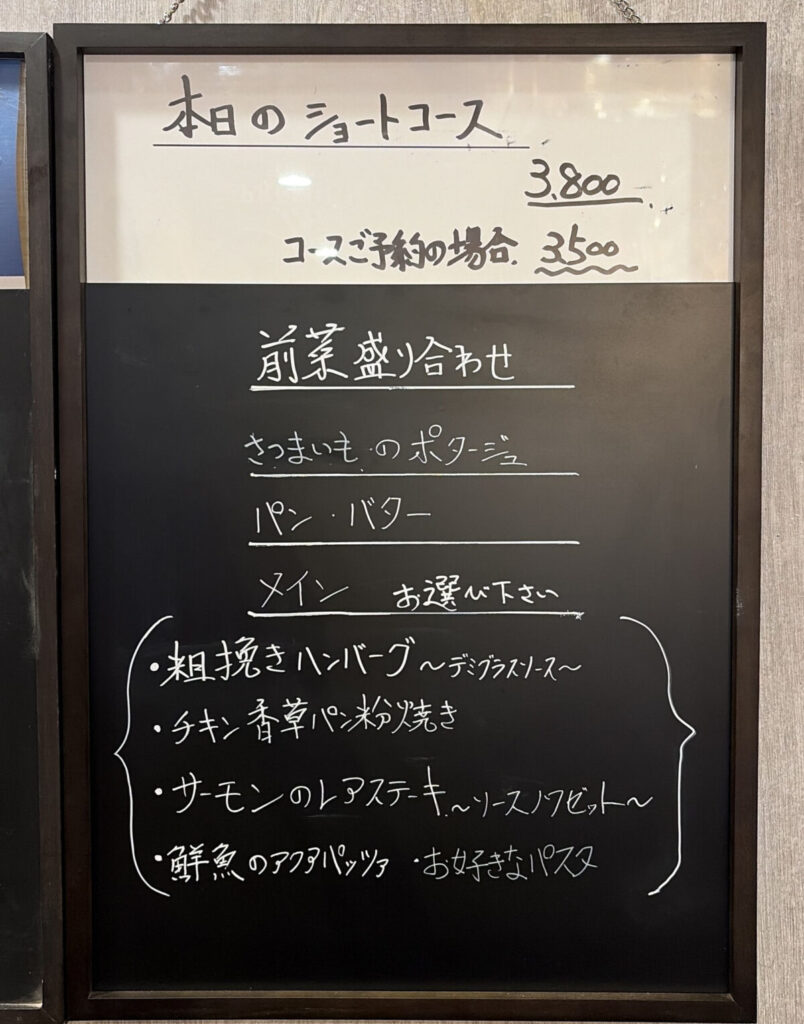 本日のショートコース
3.800
コースご予約の場合. 3.500
前菜盛り合わせ
さつまいものポタージュ
パン・バター
メイン お選び下さい
・粗挽きハンバーグ〜デミグラスソース〜
・チキン香草パン粉焼き
・サーモンのレアステーキ〜ソースノワゼット〜
・鮮魚のアクアパッツァ ・お好きなパスタ